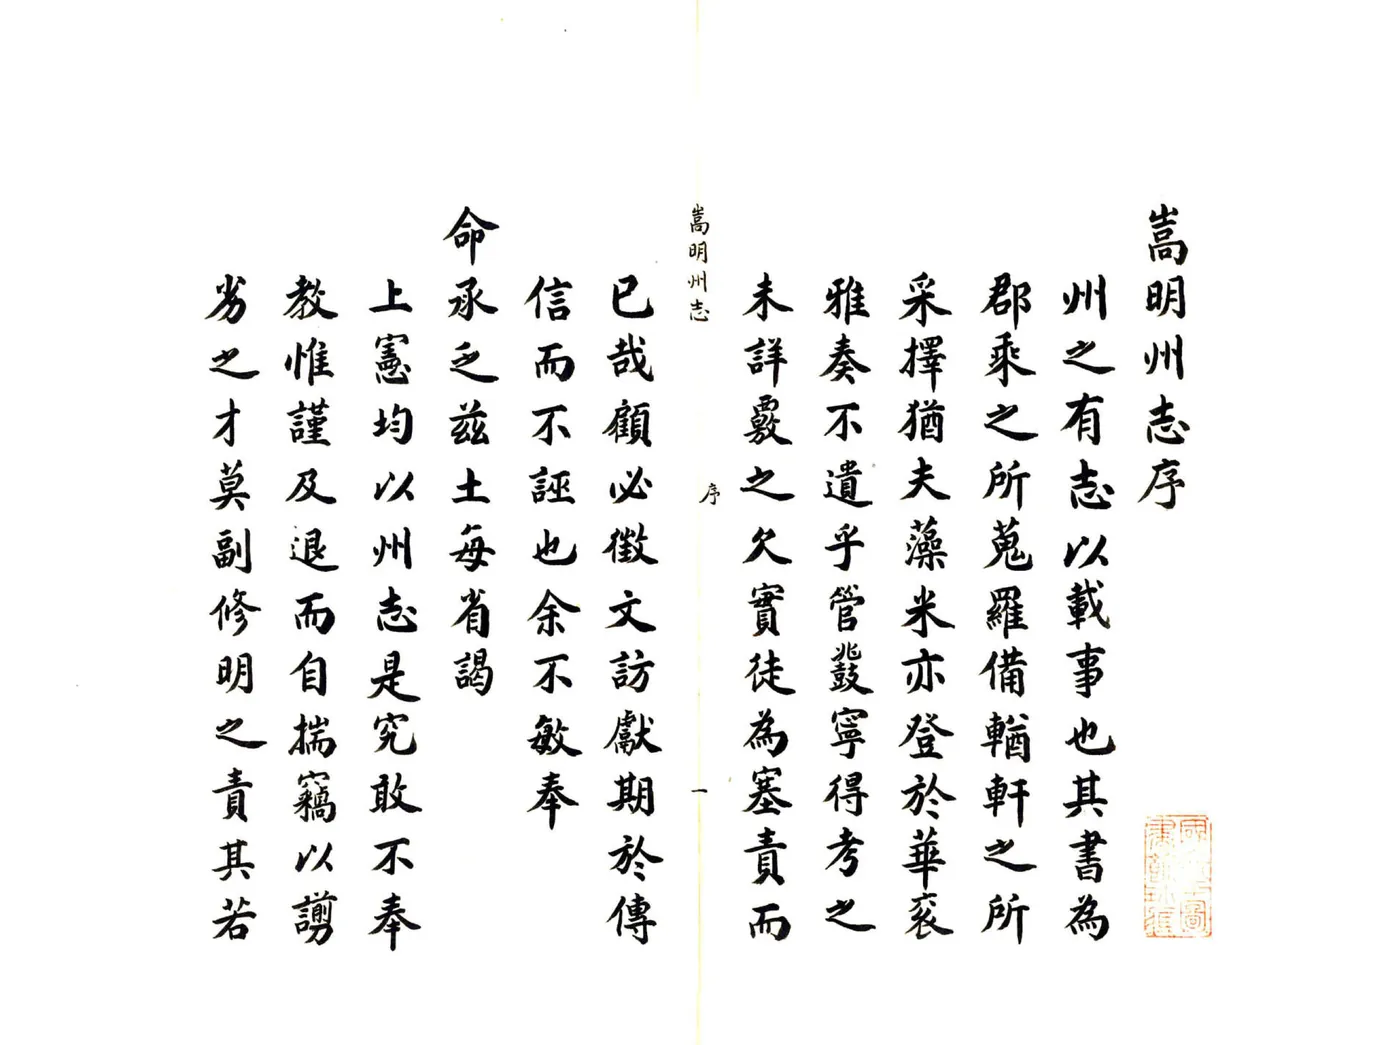 嵩明州志序
州之有志以載事也其書為
郡乘之所蒐羅備輶軒之所
采擇猶夫藻米亦登於華衮
雅奏不遺乎管鼗寧得考之
未詳覈之欠實徒為塞責而
嵩明州志 序 一
已哉顧必徵文訪獻期於傳
信而不誣也余不敏奉
命承乏茲土每省謁
上憲均以州志是究敢不奉
教惟謹及退而自揣竊以謭
劣之才莫副修明之責其若